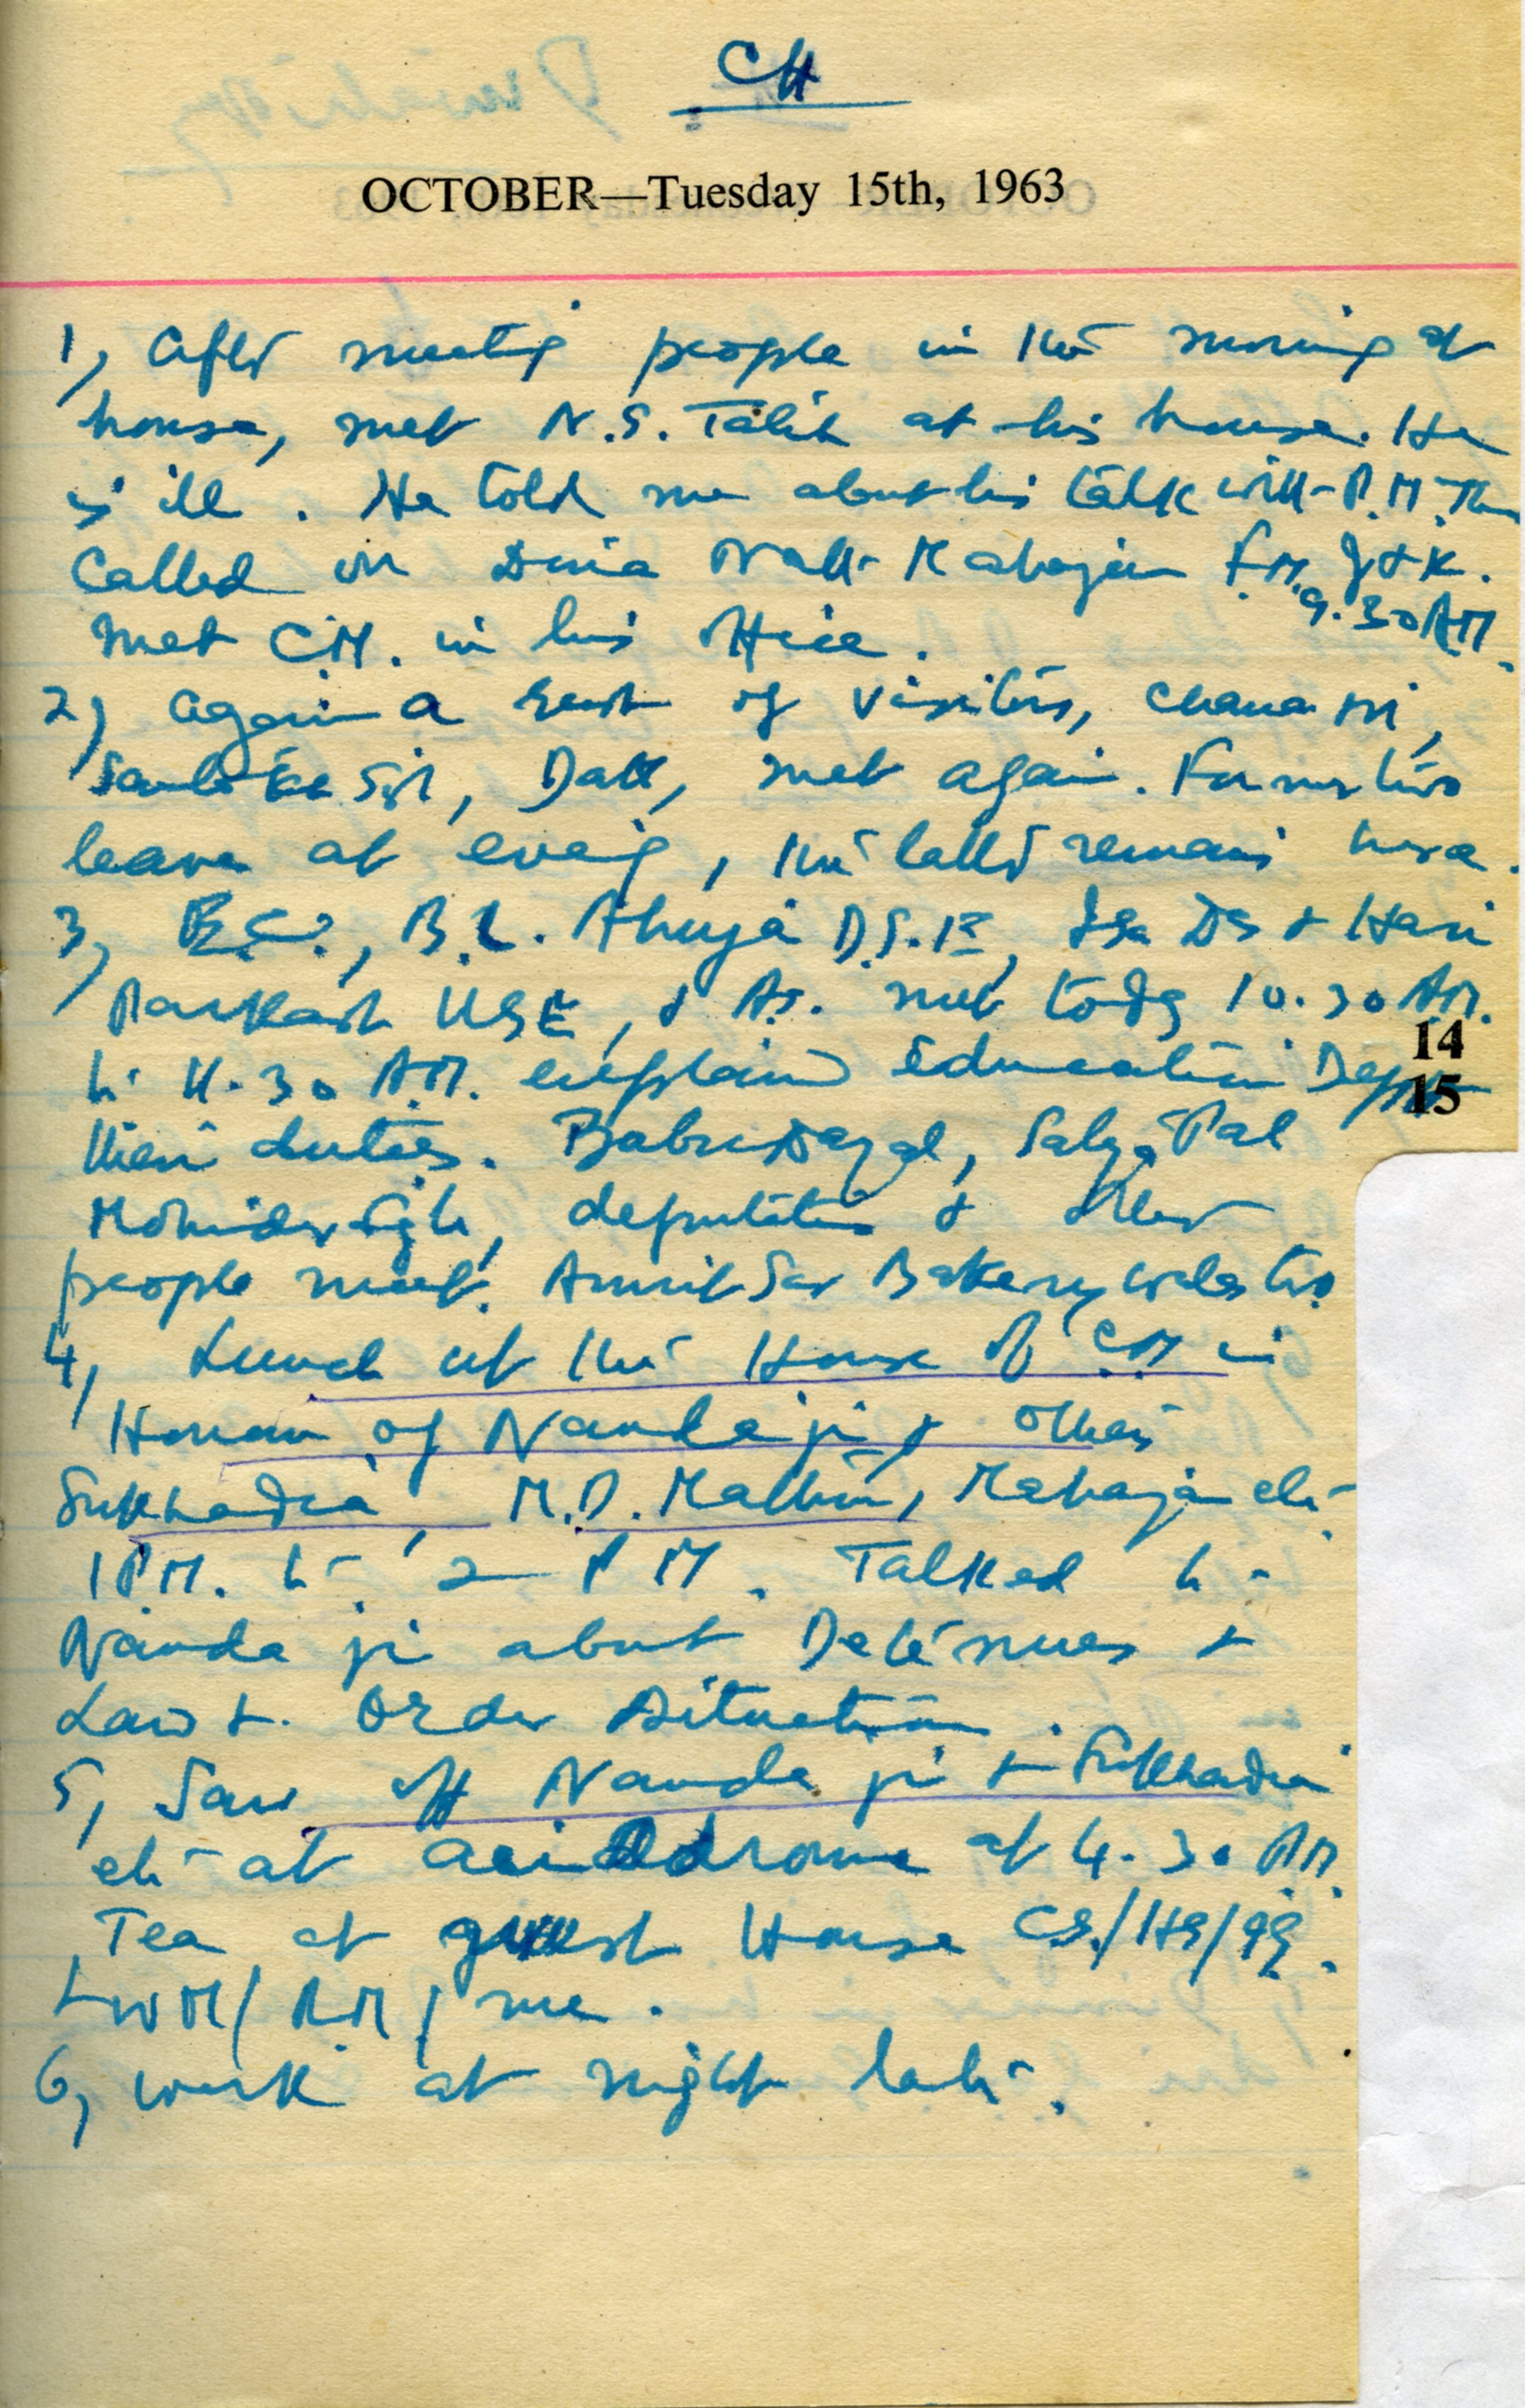 CH
OCTOBER—Tuesday 15th, 1963
1, After meeting people in the morning at
house, met N.S. Talib at his house. He
is ill. He told me about his talk with P.M. Then
Called on Dina Nath Mahajan F.M. J & K.
9.30 AM.
Met C.M. in his office.
2, Again a rush of visitors,
Datt, met again. Former two
leave at evening, the latter remains here.
3, B.L. Ahuja & Hari
Parkash met today 10.30 AM.
to 11.30 AM. explained Education Deptt
their duties. Babu Dayal, Satya Pal
Mohinder Singh, deputation & other
people meet. Amritsar Bakery
14
15
4, Lunch at the House of CM in
Honour of Nanda ji & others
Sukhadia, M.D. Mathur, Mahajan etc
1 P.M. to 2 P.M. Talked to
Nanda ji about Detenues &
Law & Order Situation.
5, Saw off Nanda ji & Sukhadia
etc at at 4.30 P.M.
Tea at guest House CS/HS/
LWM/RM/me.
6, work at night late.